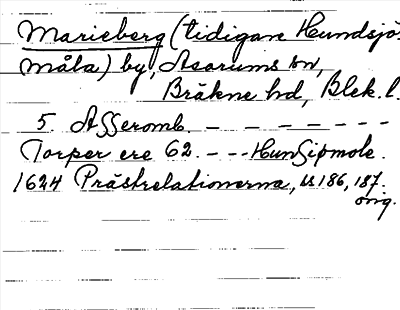 Marieberg (tidigare Hundsjö-
måla) by, Asarums sn,
Bräkne hd, Blek. l.
5. Asseromb. - - - - - - -
Torper ere 62. - - - Hunsiömole.
1624 Prästrelationerna, s 186, 187.
orig.